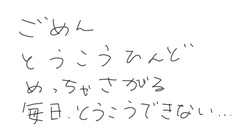 ごめん
とうこうひんど
めっちゃさがる
毎日.とうこうできない...